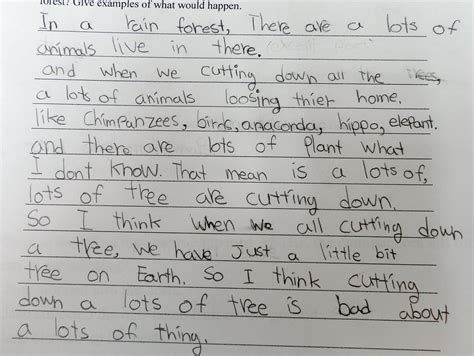 forest? Give examples of what would happen.
In a rain forest, There are a lots of
animals live in there.
and when we cutting down all the trees,
a lots of animals loosing thier home.
like Chimpanzees, birds, anaconda, hippo, elefant.
and there are lots of Plant what
I dont know. That mean is a lots of,
lots of tree are cutting down.
So I think when we all cutting down
a tree, we have just a little bit
tree on Earth. So I think cutting
down a lots of tree is bad about
a lots of thing.